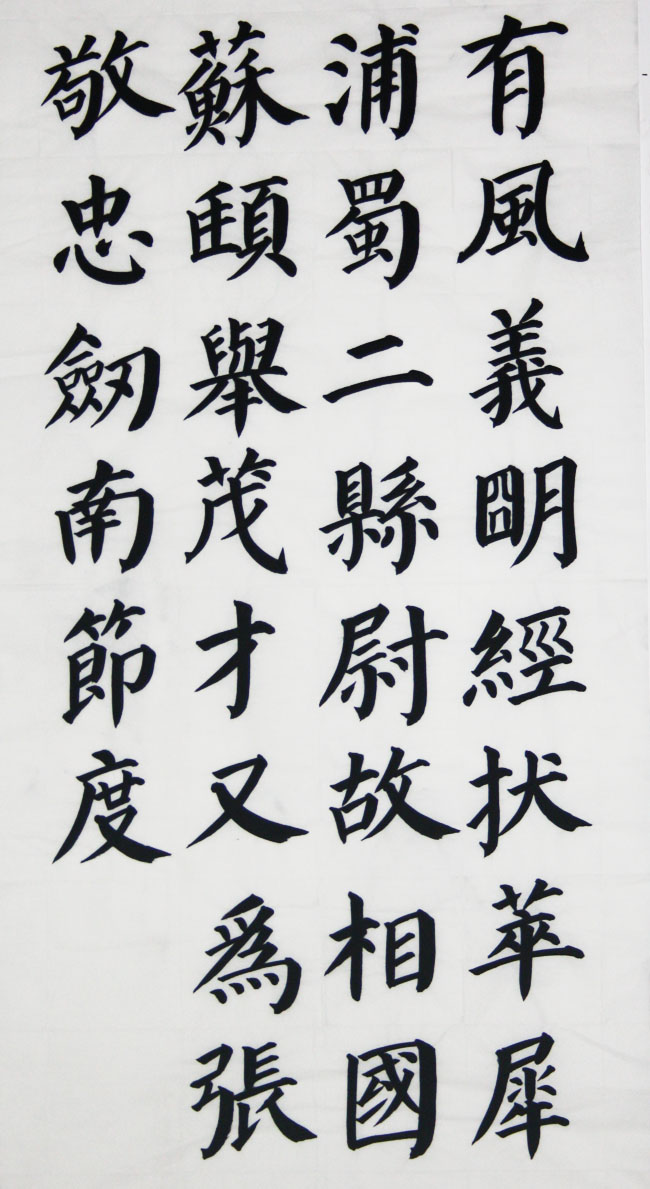 有風義朙經拔萃犀
浦蜀二縣尉故相國
蘇頲舉茂才又爲張
敬忠劒南節度